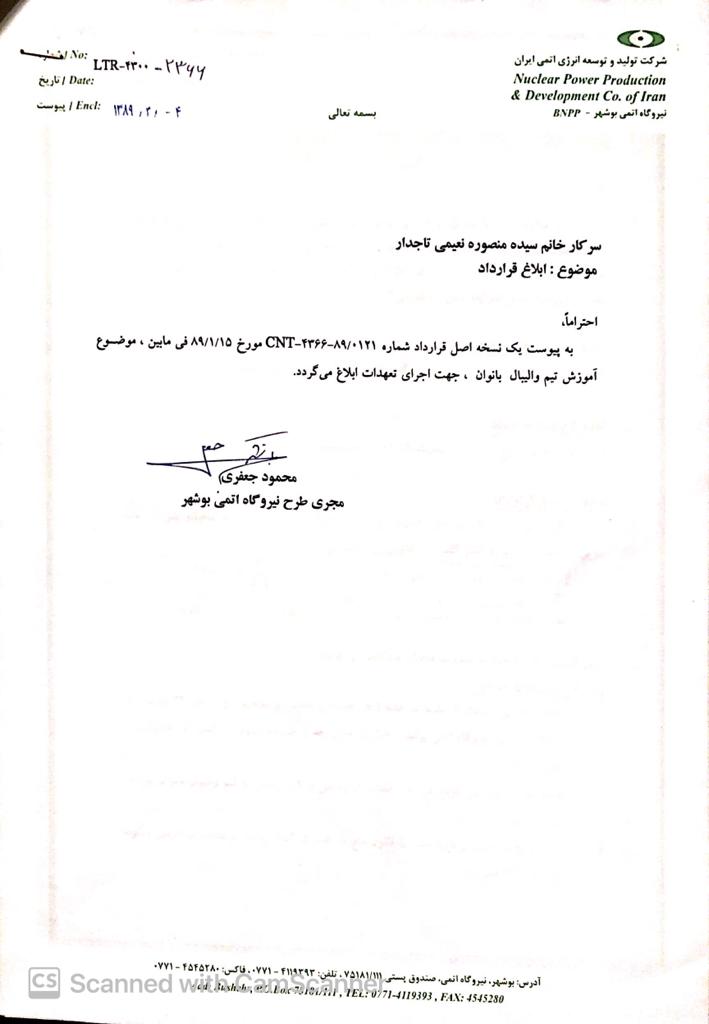 شرکت تولید و توسعه انرژی اتمی ایران
Nuclear Power Production
& Development Co. of Iran
نیروگاه اتمی بوشهر - BNPP
No:
LTR-۴۳۰۰-۲۳۶۶
تاریخ / Date:
پیوست / Encl:
بسمه تعالی
سرکار خانم سیده منصوره نعیمی تاجدار
موضوع : ابلاغ قرارداد
احتراماً،
به پیوست یک نسخه اصل قرارداد شماره CNT-۴۳۶۶-۸۹/۰۱۲۱ مورخ ۸۹/۱/۱۵ فی مابین ، موضوع
آموزش تیم والیبال بانوان ، جهت اجرای تعهدات ابلاغ می‌گردد.
محمود جعفری
مجری طرح نیروگاه اتمی بوشهر
آدرس: بوشهر، نیروگاه اتمی، صندوق پستی ۷۵۱۸۱/۱۱۱ ، تلفن: ۴۱۱۹۳۹۳ - ۰۷۷۱، فاکس: ۴۵۴۵۲۸۰ - ۰۷۷۱
Add: Bushehr, P.O.Box 75181/111 , TEL: 0771-4119393 , FAX: 4545280
CS Scanned with CamScanner